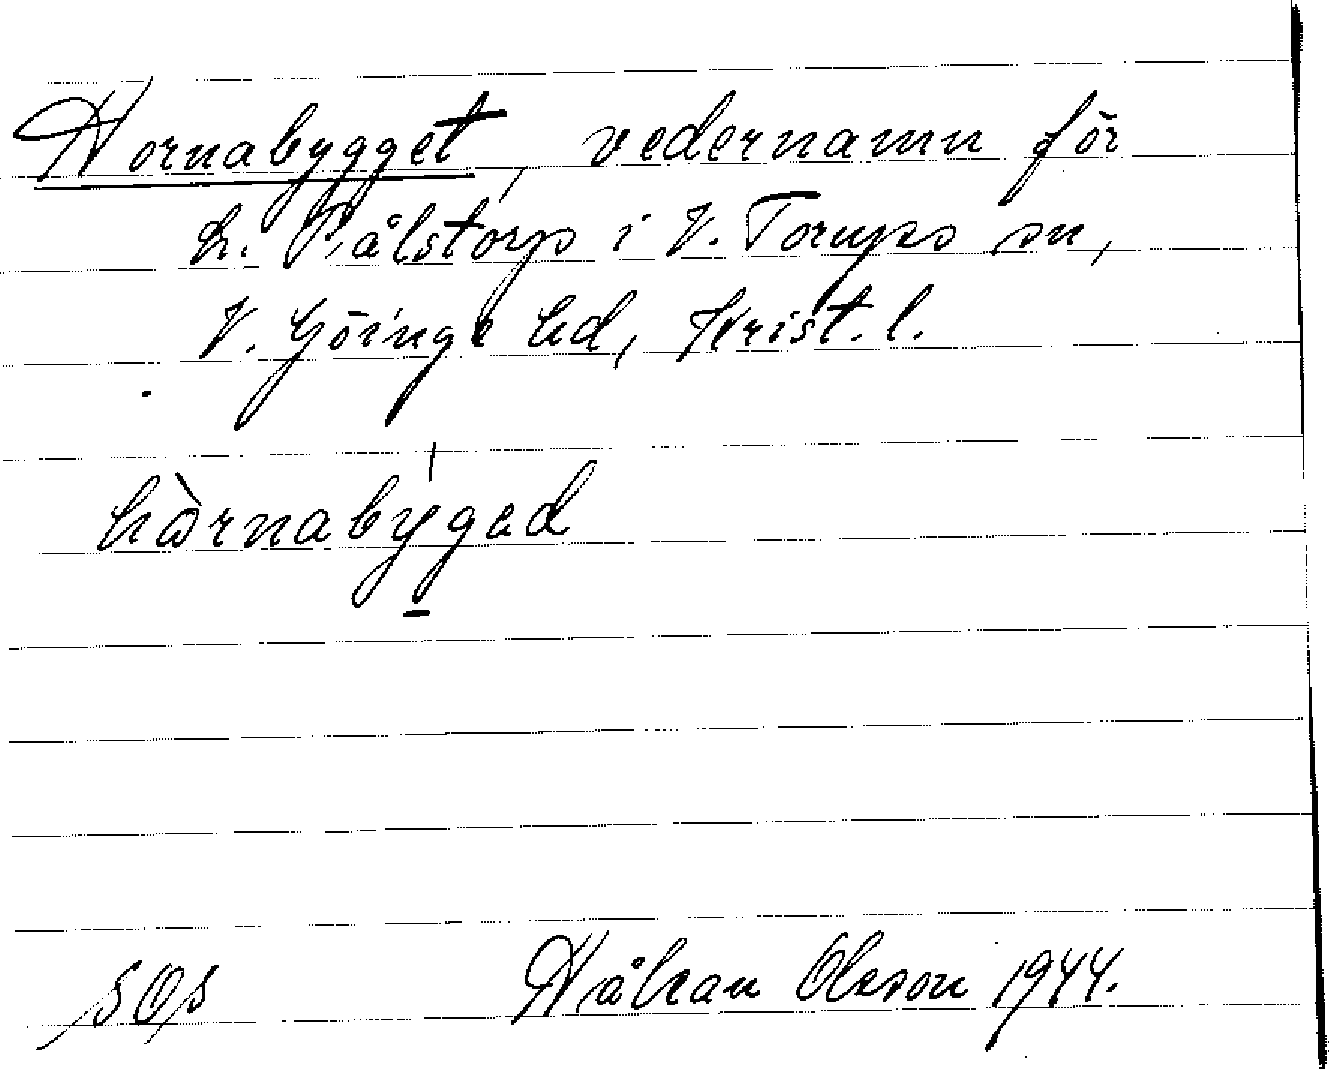 Hornabygget, vedernamn för
h. Pålstorp i V. Torups sn,
V. Göinge hd, Krist. l.
hòrnabýged
SOS Håkan Olsson 1944.